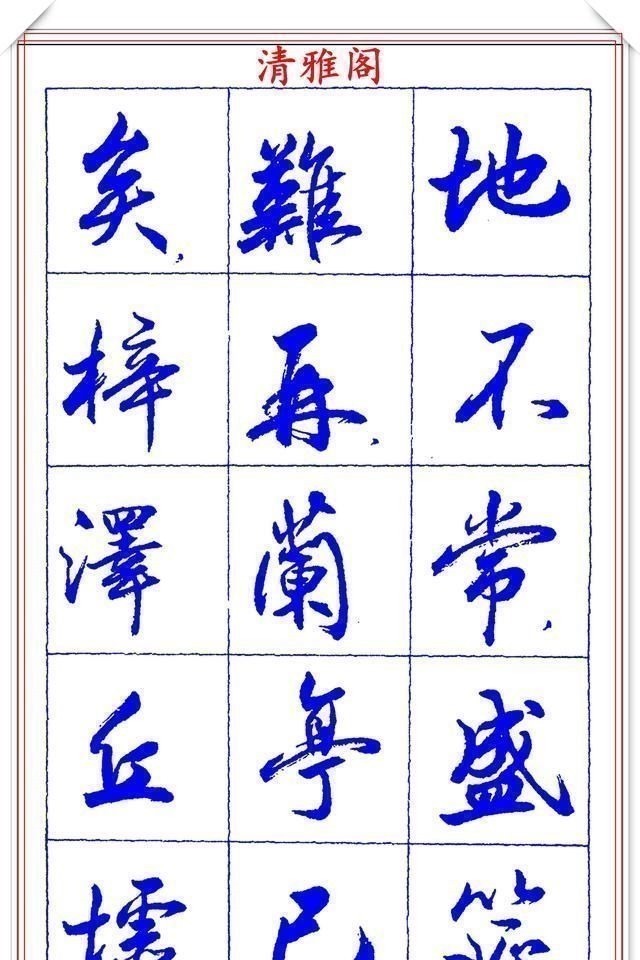 清雅阁
地不常，盛筵
難再，蘭亭已
矣，梓澤丘墟